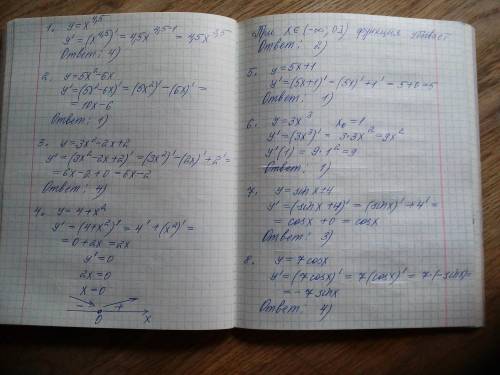 1. y = x^4,5
y' = (x^4,5)' = 4,5x^4,5-1 = 4,5x^3,5
Ответ: 4)
2. y = 5x² - 6x
y' = (5x² - 6x)' = (5x²)' - (6x)' =
= 10x - 6
Ответ: 1)
3. y = 3x² - 2x + 2
y' = (3x² - 2x + 2)' = (3x²)' - (2x)' + 2' =
= 6x - 2 + 0 = 6x - 2
Ответ: 4)
4. y = 4 + x²
y' = (4 + x²)' = 4' + (x²)' =
= 0 + 2x = 2x
y' = 0
2x = 0
x = 0
- +
0 x
При x ∈ (-∞; 0] функция убывает
Ответ: 2)
5. y = 5x + 1
y' = (5x + 1)' = (5x)' + 1' = 5 + 0 = 5
Ответ: 1)
6. y = 3x³ x₀ = 1
y' = (3x³)' = 3·3x² = 9x²
y'(1) = 9·1² = 9
Ответ: 1)
7. y = sin x + 4
y' = (sin x + 4)' = (sin x)' + 4' =
= cos x + 0 = cos x
Ответ: 3)
8. y = 7 cos x
y' = (7 cos x)' = 7 (cos x)' = 7·(-sin x) =
= -7 sin x
Ответ: 4)